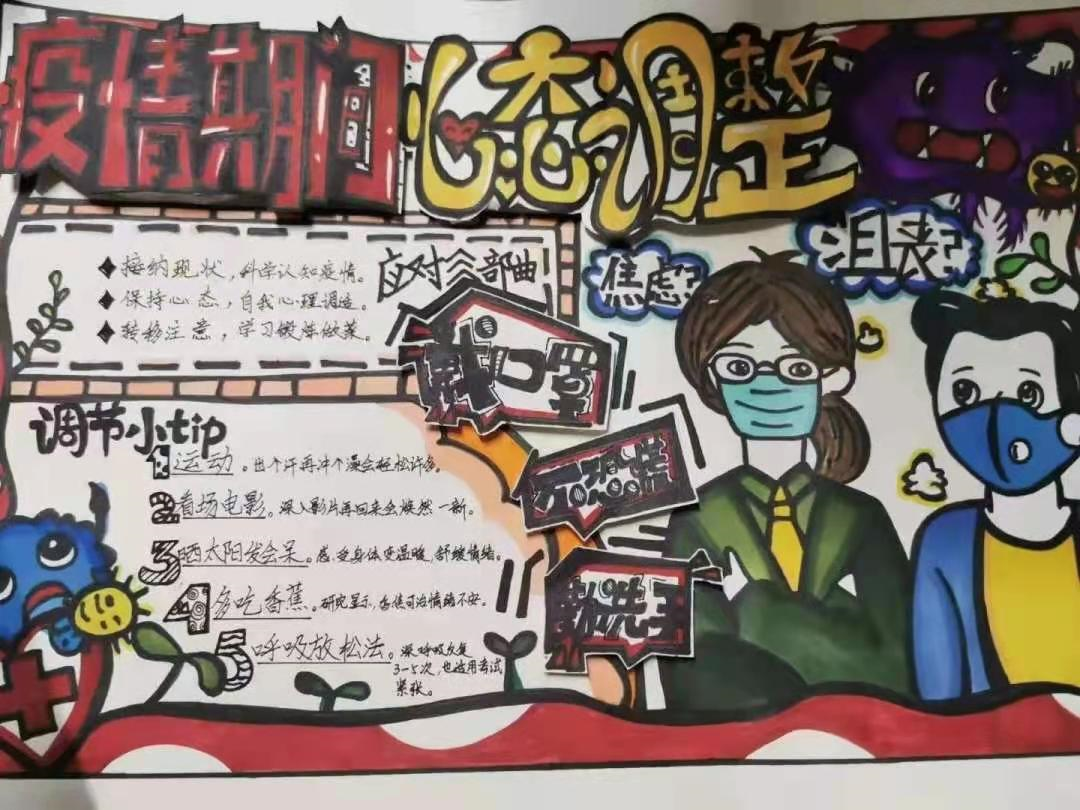 疫情期间 心态调整
应对三部曲
接纳现状，科学认知疫情。
保持心态，自我心理调适。
转移注意，学习锻炼做菜。
焦虑？
沮丧？
戴口罩
不恐慌
勤洗手
调节小tip
1运动。出个汗再冲个澡会轻松许多。
2看场电影。深入影片再回来会焕然一新。
3晒太阳发会呆。感受身体变温暖，舒缓情绪。
4多吃香蕉。研究显示，香蕉可治情绪不安。
5呼吸放松法。深呼吸反复
3-5次，也适用考试
紧张。